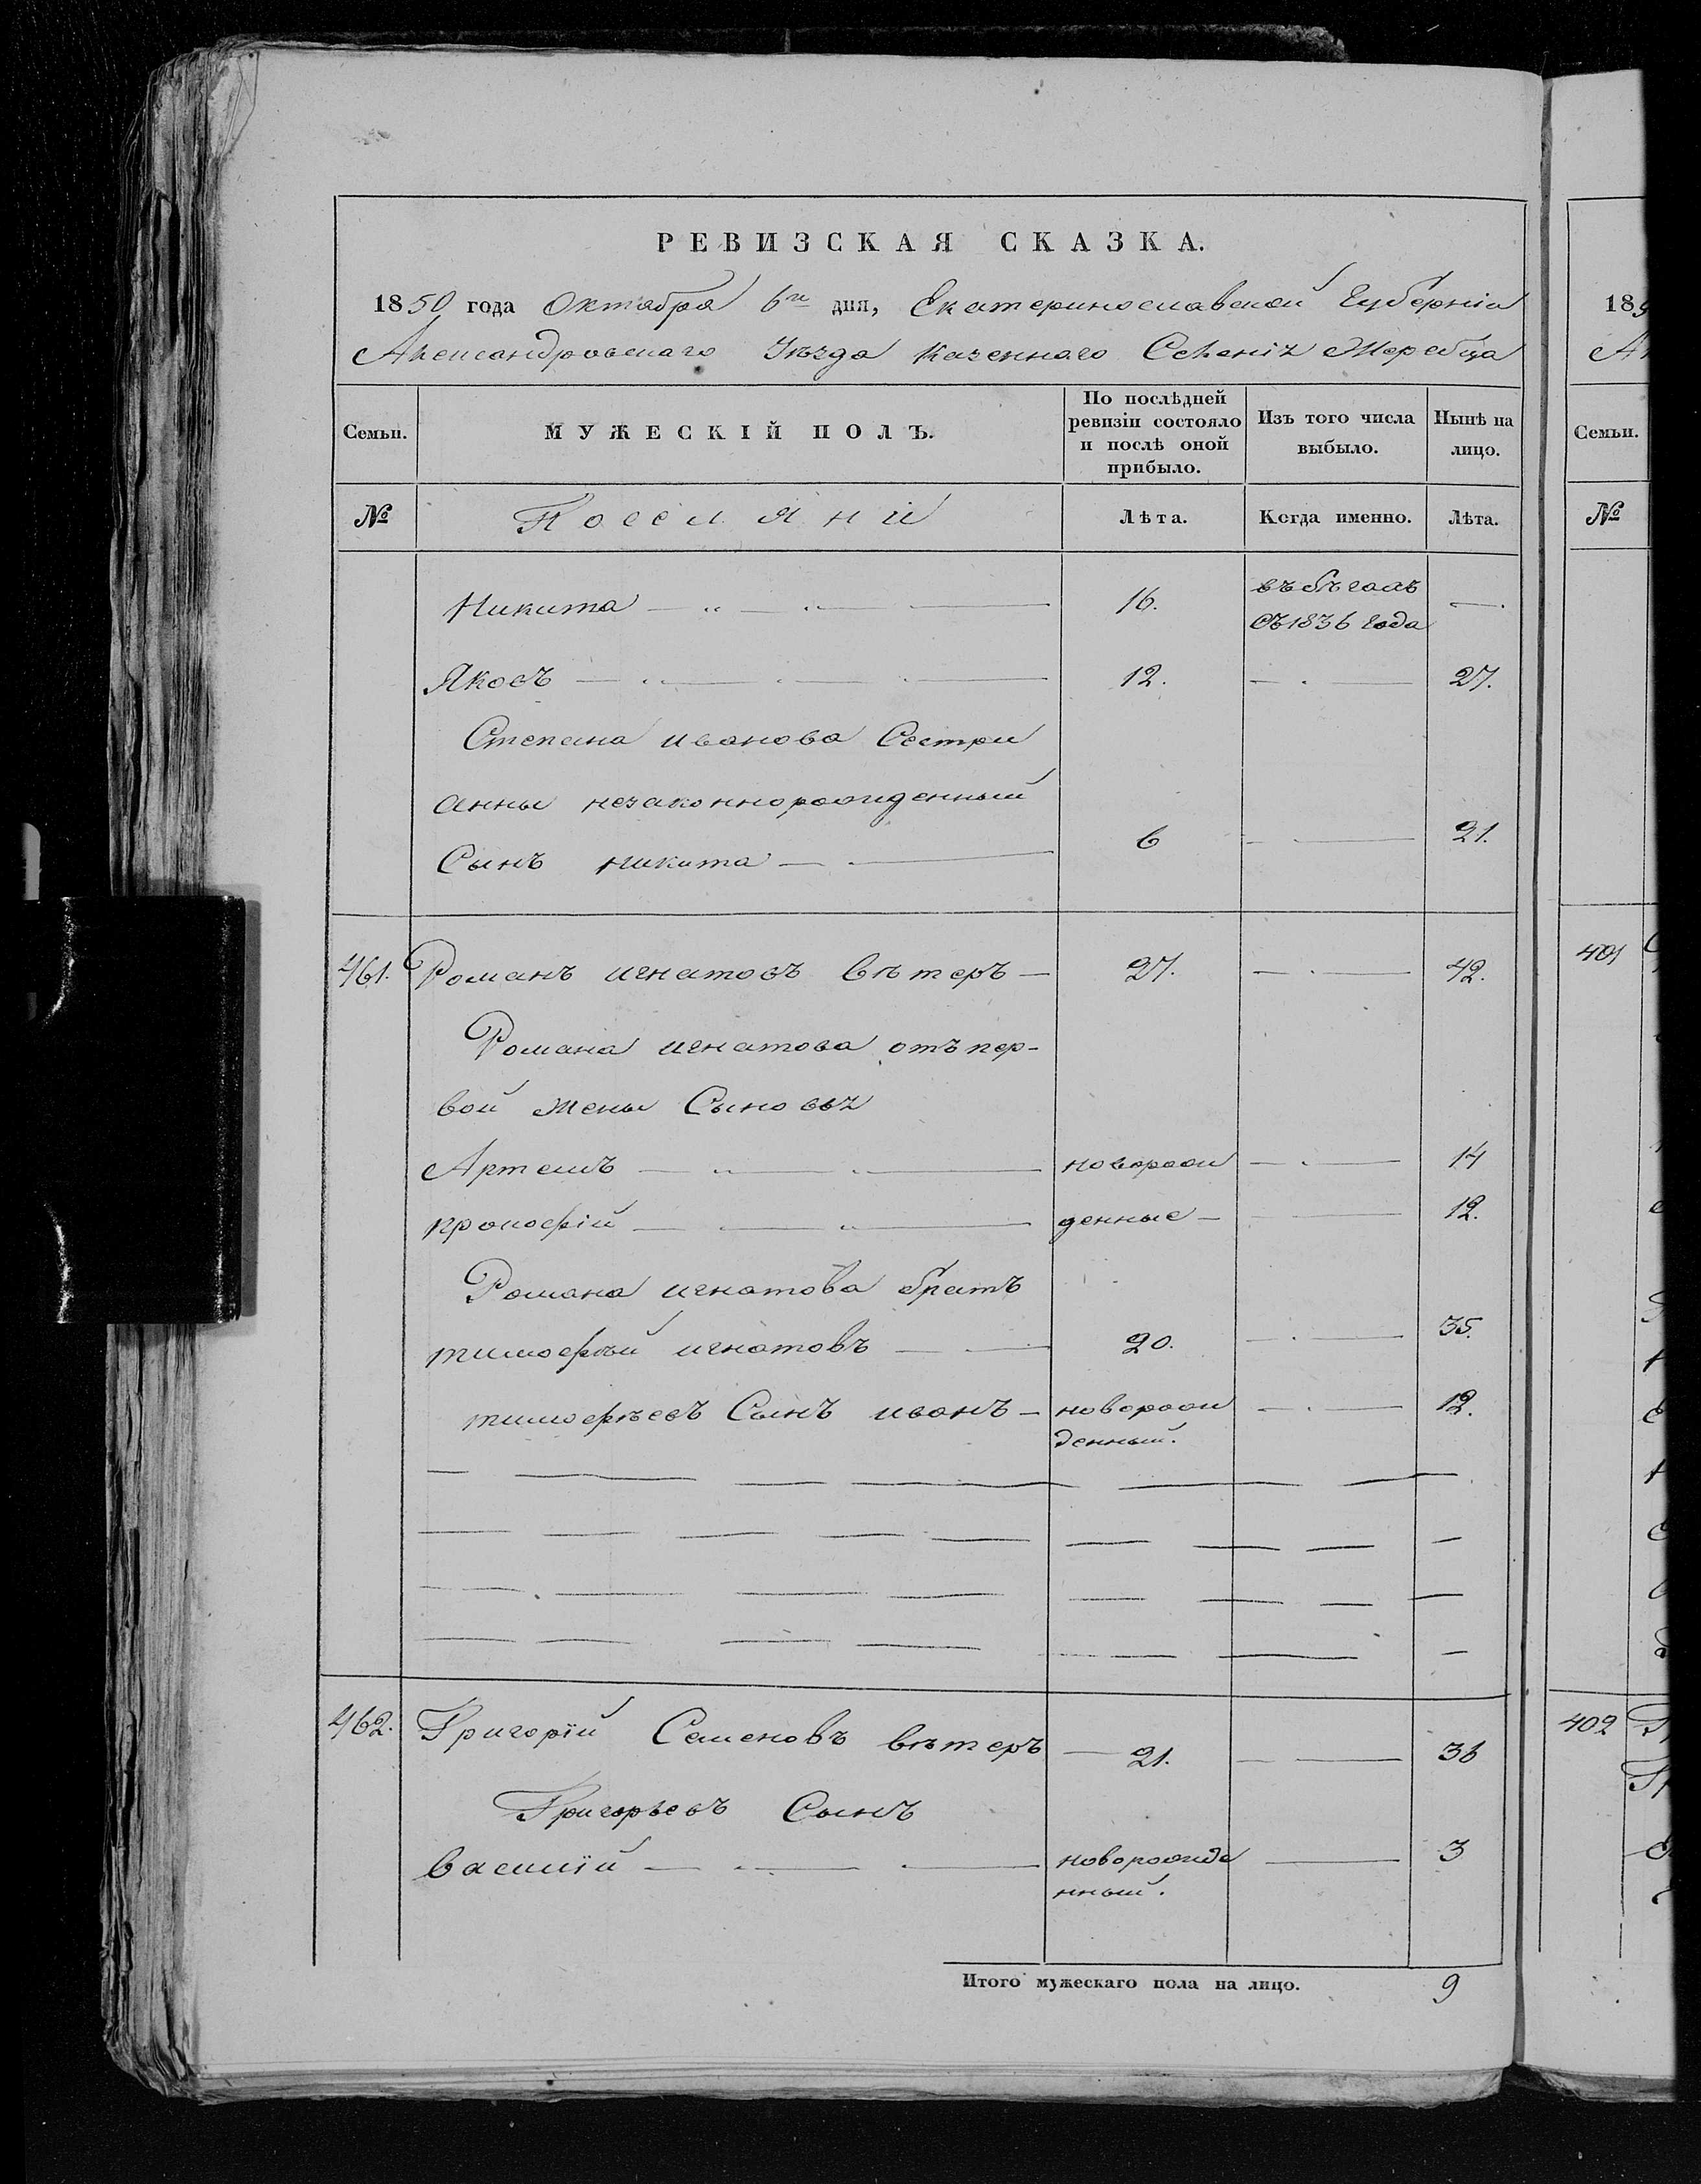 РЕВИЗСКАЯ СКАЗКА.
1850 года Октября 6го дня, Екатеринославской Губерніи
Александровскаго Уѣзда Казеннаго Селенія Жеребца
Семьи. МУЖЕСКІЙ ПОЛЪ. По послѣдней ревизіи состояло и послѣ оной прибыло. Изъ того числа выбыло. Нынѣ на лицо.
№ Поселяни Лѣта. Когда именно. Лѣта.
Никита — 16. въ бѣгахъ съ 1836 года —
Яковъ — 12. — 27.
Степана иванова Сестри
анны незаконнорожденный
Сынъ никита — 6 — 21.
461. Романъ игнатовъ вѣтеръ — 27. — 42.
Романа игнатова отъ пер-
вой жены Сыновья
Артемъ — новорож — 14
прокофій — денные — 12.
Романа игнатова братъ
тимофѣй игнатовъ — 20. — 35.
тимофѣевъ Сынъ иванъ — новорож — 12.
денный.
462. Григорій Семеновъ вѣтеръ — 21. — 36
Григорьевъ Сынъ
василій — новорожде — 3
нный.
Итого мужескаго пола на лицо. 9
185
Ал
Семьи.
№
401
402